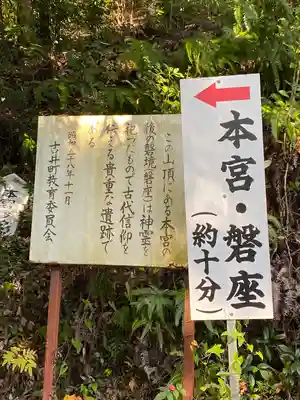 本宮・磐座
(約十分)
この山頂にある本宮の
後の磐境(磐座)は神霊を
祀ったもので古代信仰を
伝える貴重な遺跡で
ある
昭和二十八年十一月
古井町教育委員会